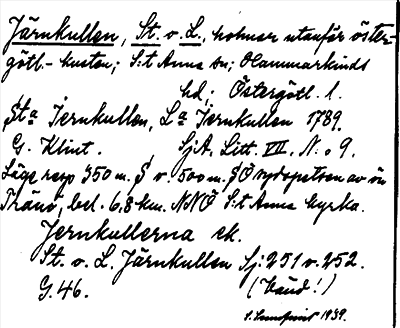 Järnkullen, St. o. L., holmar utanför öster-
götl.- kusten; S:t Anna sn; Hammarkinds
hd; Östergötl. l.
St.a Jernkullen, L.a Jernkullen 1789.
G. Klint. SjA. Litt. VII. N. o 9.
Läge resp 350 m. S o. 500 m. SÖ sydspetsen av ön
Tränö, bel. 6,8 km. NNÖ S:t Anna kyrka.
Jernkullerna ek.
St. o. L. Järnkullen Sj: 251 o. 252.
G. 46. (Länd!)
1939.